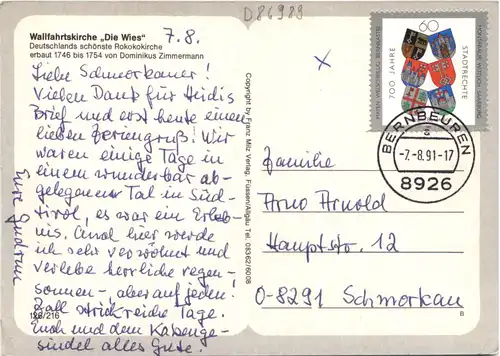 D86989
Wallfahrtskirche „Die Wies"
Deutschlands schönste Rokokokirche
erbaut 1746 bis 1754 von Dominikus Zimmermann
7.8.
Liebe Schmorkauer!
Vielen Dank für Heidis
Brief und erst heute einen
lieben Feriengruß! Wir
waren einige Tage in
einem wunderbar ab-
gelegenen Tal in Süd-
tirol, es war ein Erleb-
nis. Auch hier werde
ich sehr verwöhnt und
verlebe herrliche regen-
sonnen-, aber auf jeden
Fall strickreiche Tage.
Euch und dem Katzenge-
sindel alles Gute!
Eure Gudrun
128/216
Copyright by Franz Milz Verlag, Füssen/Allgäu Tel. 08362/6008
x
60
700 JAHRE
STADTRECHTE
BERNBEUREN
a
-7.-8.91-17
8926
Familie
Arno Arnold
Hauptstr. 12
O-8291 Schmorkau
B